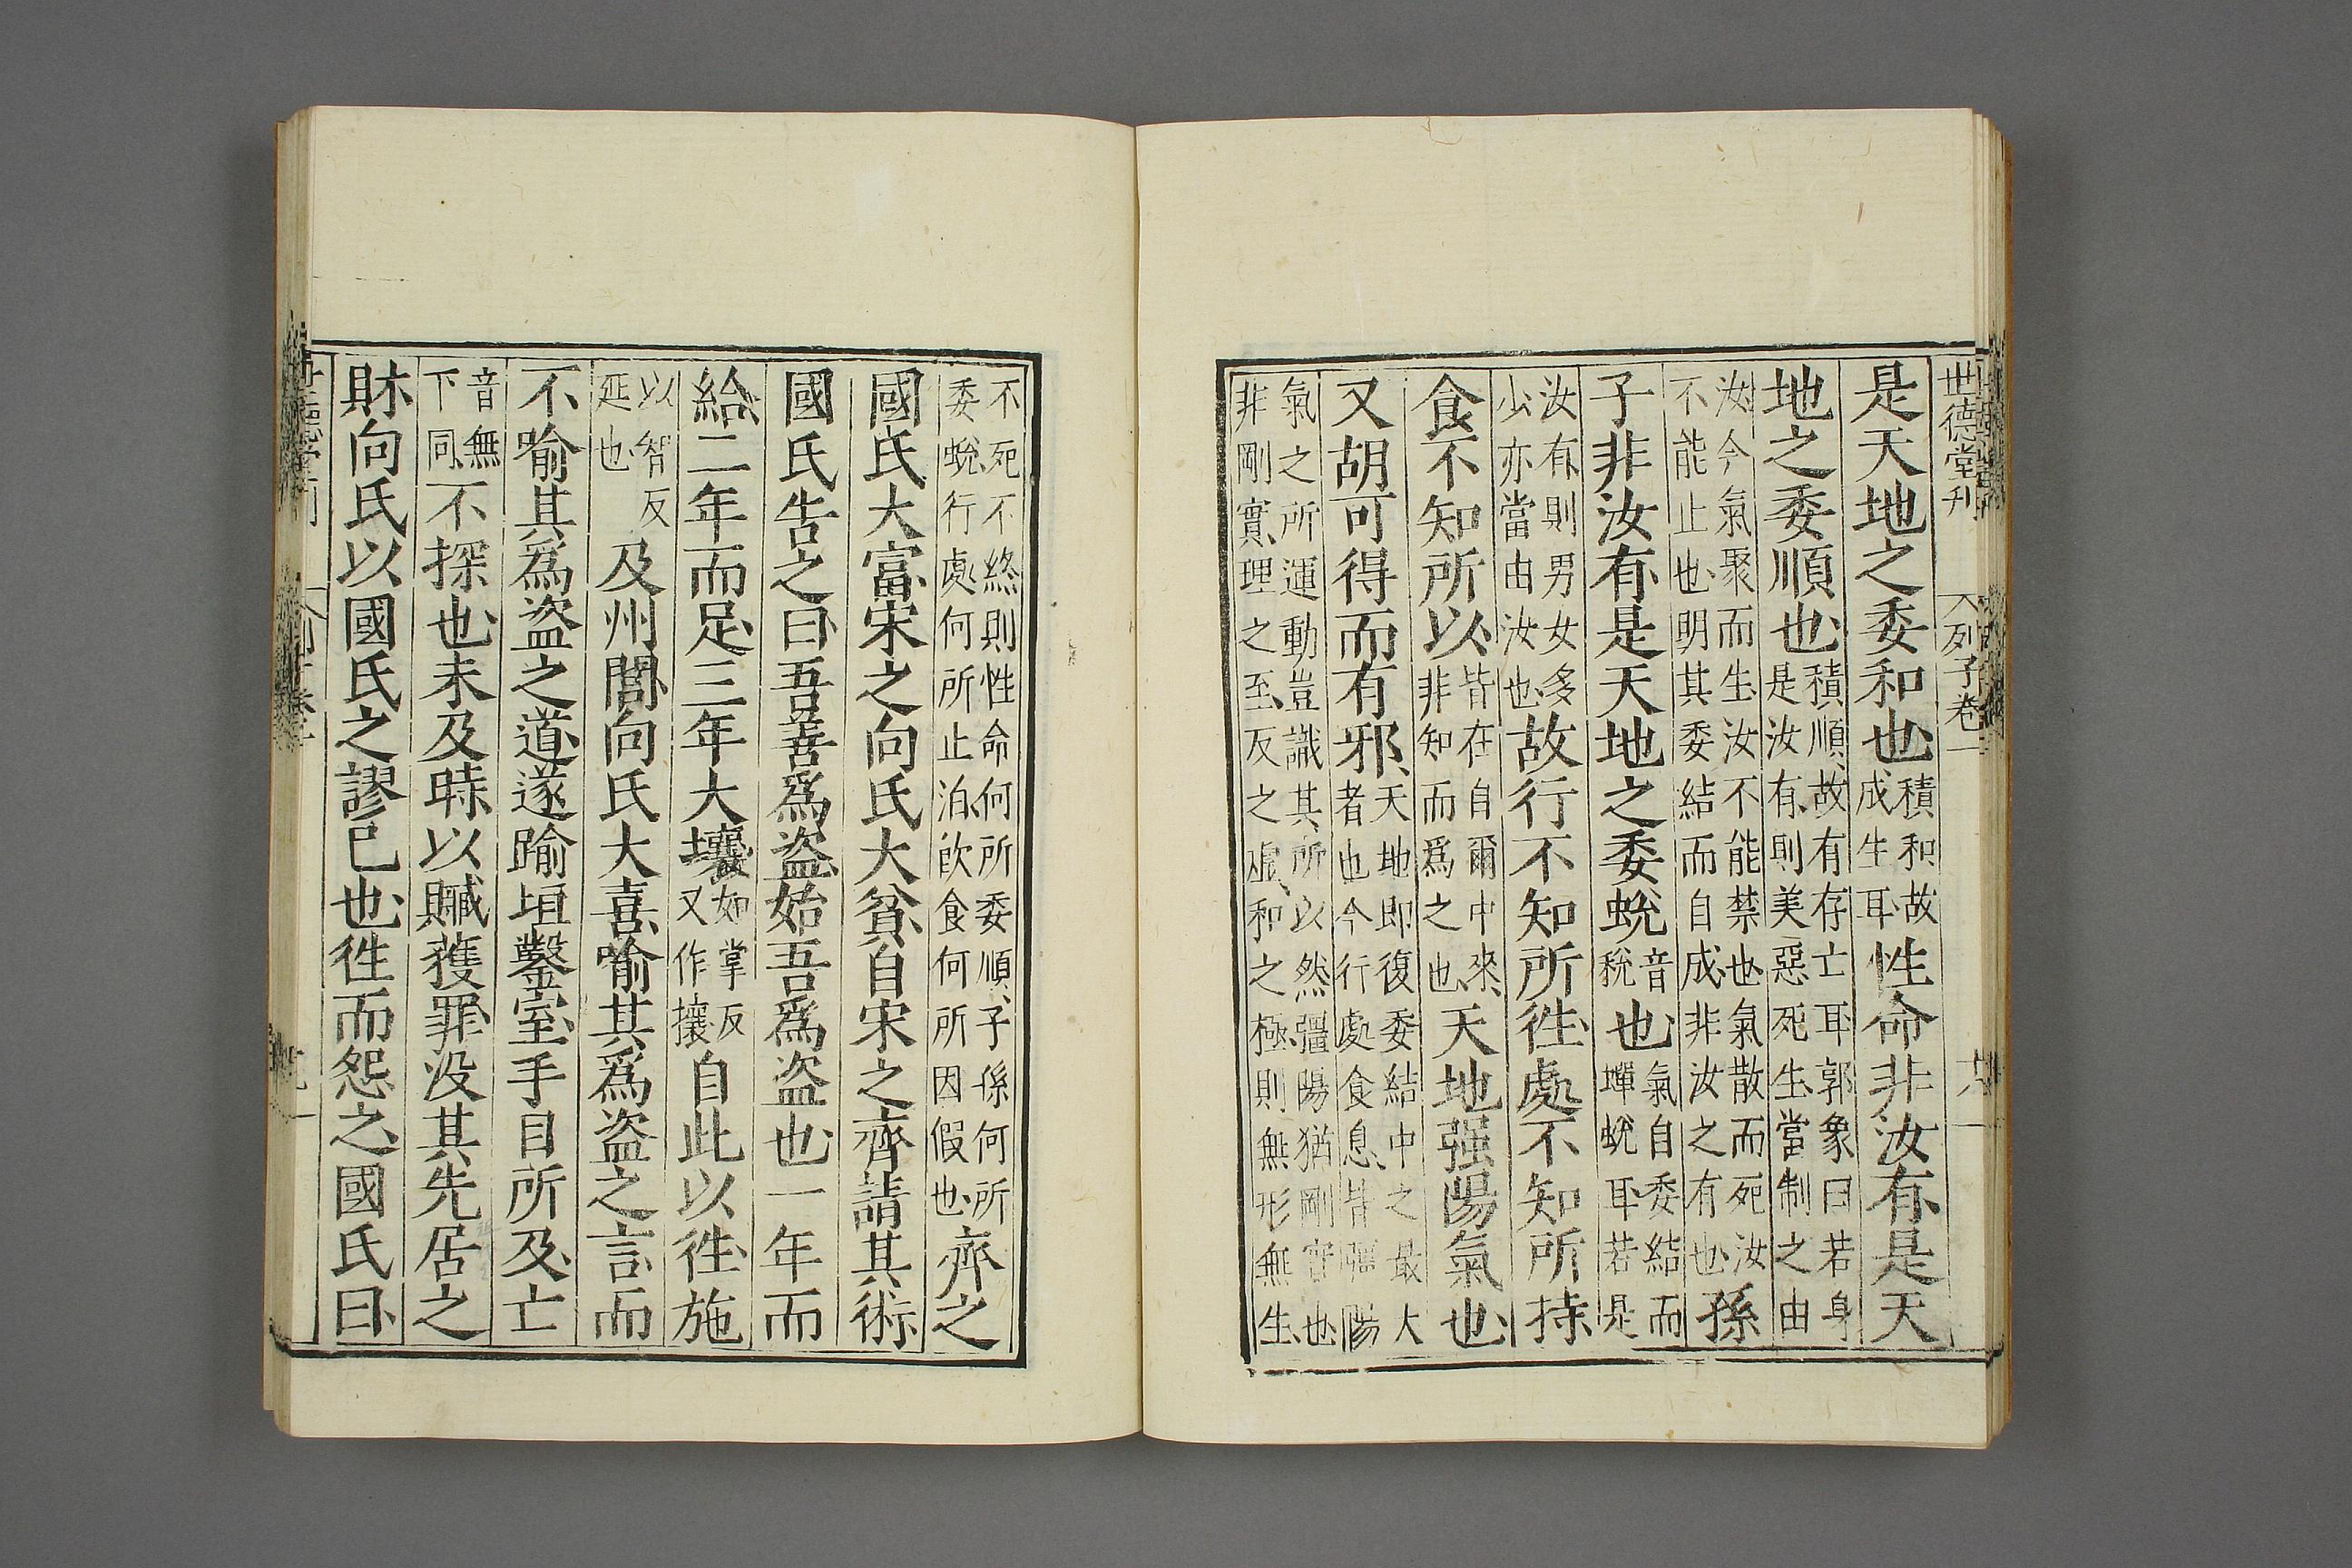 世德堂刊 列子卷一 十八
是天地之委和也積和故成生耳性命非汝有是天
地之委順也積順故有存亡耳郭象曰若身是汝有則美惡死生當制之由
汝今氣聚而生汝不能禁也氣散而死汝不能止也明其委結而自成非汝之有也孫
子非汝有是天地之委蛻音稅也氣自委結而蟬蛻耳若是
汝有則男女多少亦當由汝也故行不知所徃處不知所持
食不知所以皆在自爾中來非知而爲之也天地强陽氣也
又胡可得而有邪天地即復委結中之最大者也今行處食息皆彊陽
氣之所運動豈識其所以然彊陽猶剛實也非剛實理之至反之虛和之極則無形無生
不死不終則性命何所委順子孫何所委蛻行處何所止泊飲食何所因假也齊之
國氏大富宋之向氏大貧自宋之齊請其術
國氏告之曰吾善爲盗始吾爲盗也一年而
給二年而足三年大壤如掌反又作攘自此以徃施
以智反延也及州閭向氏大喜喻其爲盗之言而
不喻其爲盗之道遂踰垣鑿室手目所及亡
音無下同不探也未及時以贓獲罪没其先居之
財向氏以國氏之謬已也徃而怨之國氏曰